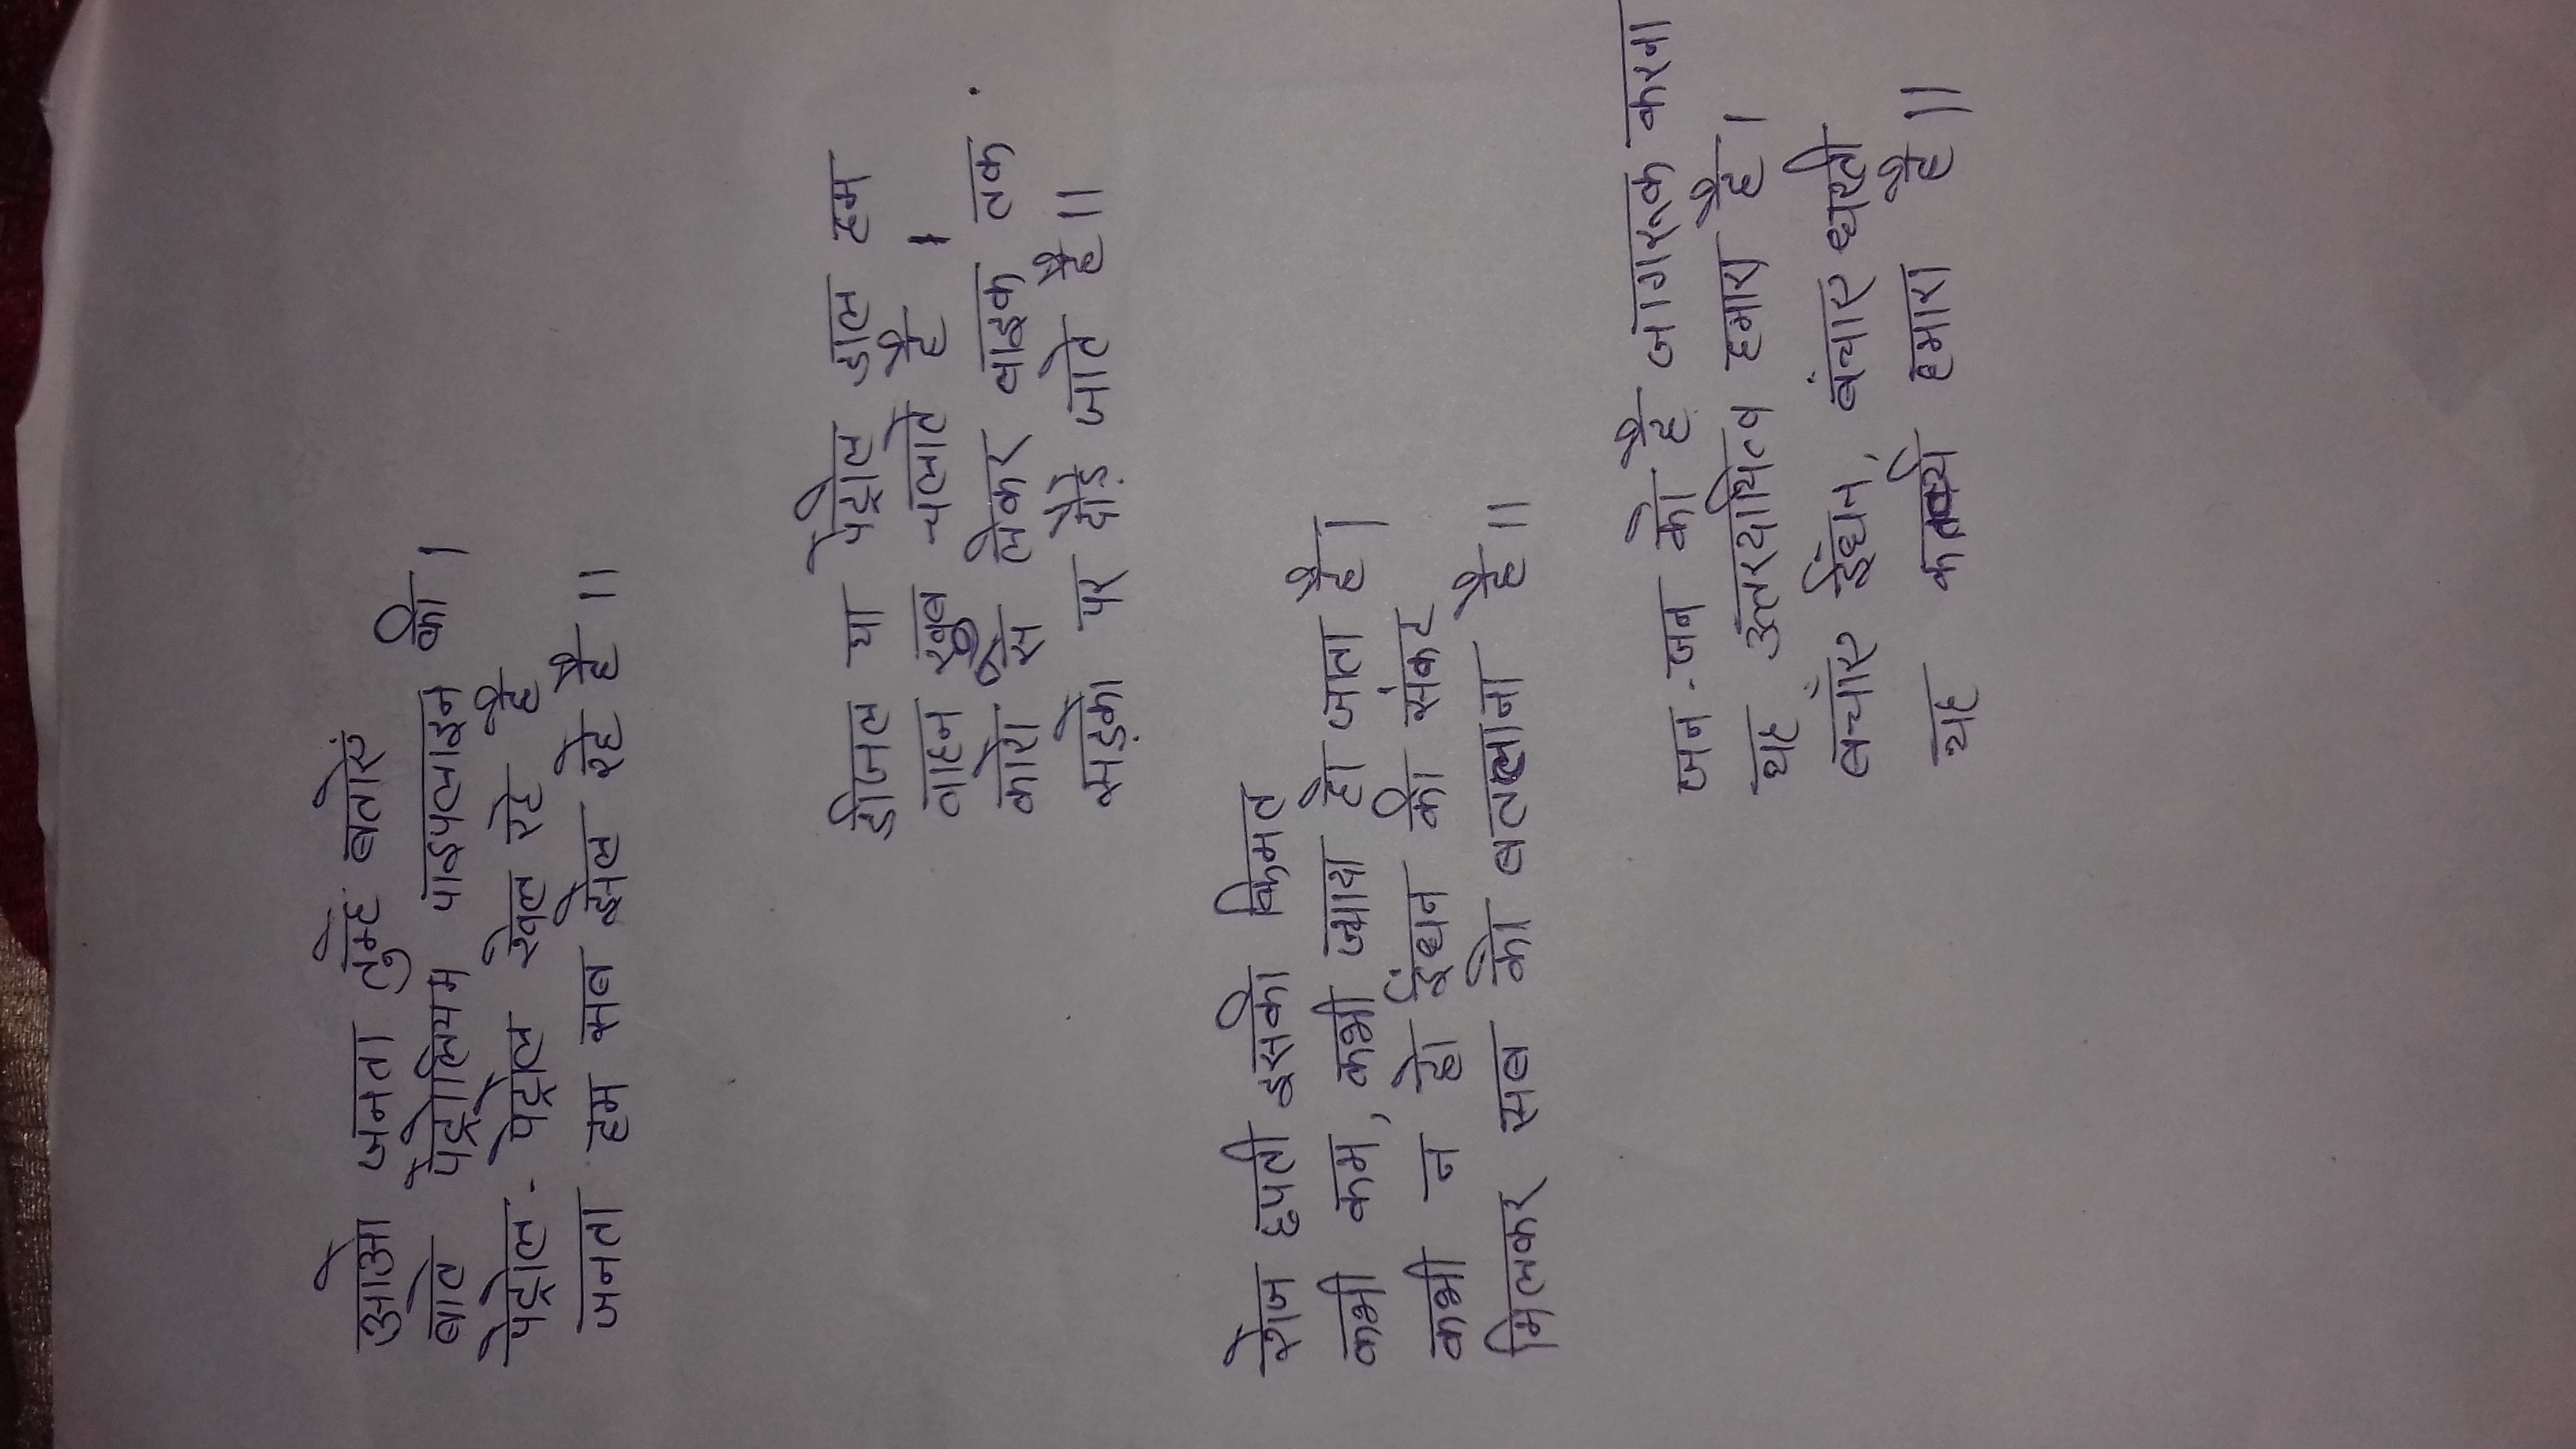 आओ जनता तुम्हें बताएं
बातें पेट्रोलियम पाइपलाइन की ।
पेट्रोल-पेट्रोल खेल रहे है
जनता हम सब झेल रहे है ॥
डीजल या पेट्रोल डाल हम
वाहन खूब चलाते है ।
कारो से लेकर बाइक तक
सड़को पर दौड़े जाते है ॥
रोज छपती इसकी किमत
कभी कम, कभी ज्यादा हो जाता है ।
कभी न हो ईंधन की संकट
मिलकर सब को बतलाना है ॥
जन-जन को है जागरूक करना
यह उत्तरदायित्व हमारा है ।
बचाँए ईंधन, बंचाए धरती
यह कर्तव्य हमारा है ॥